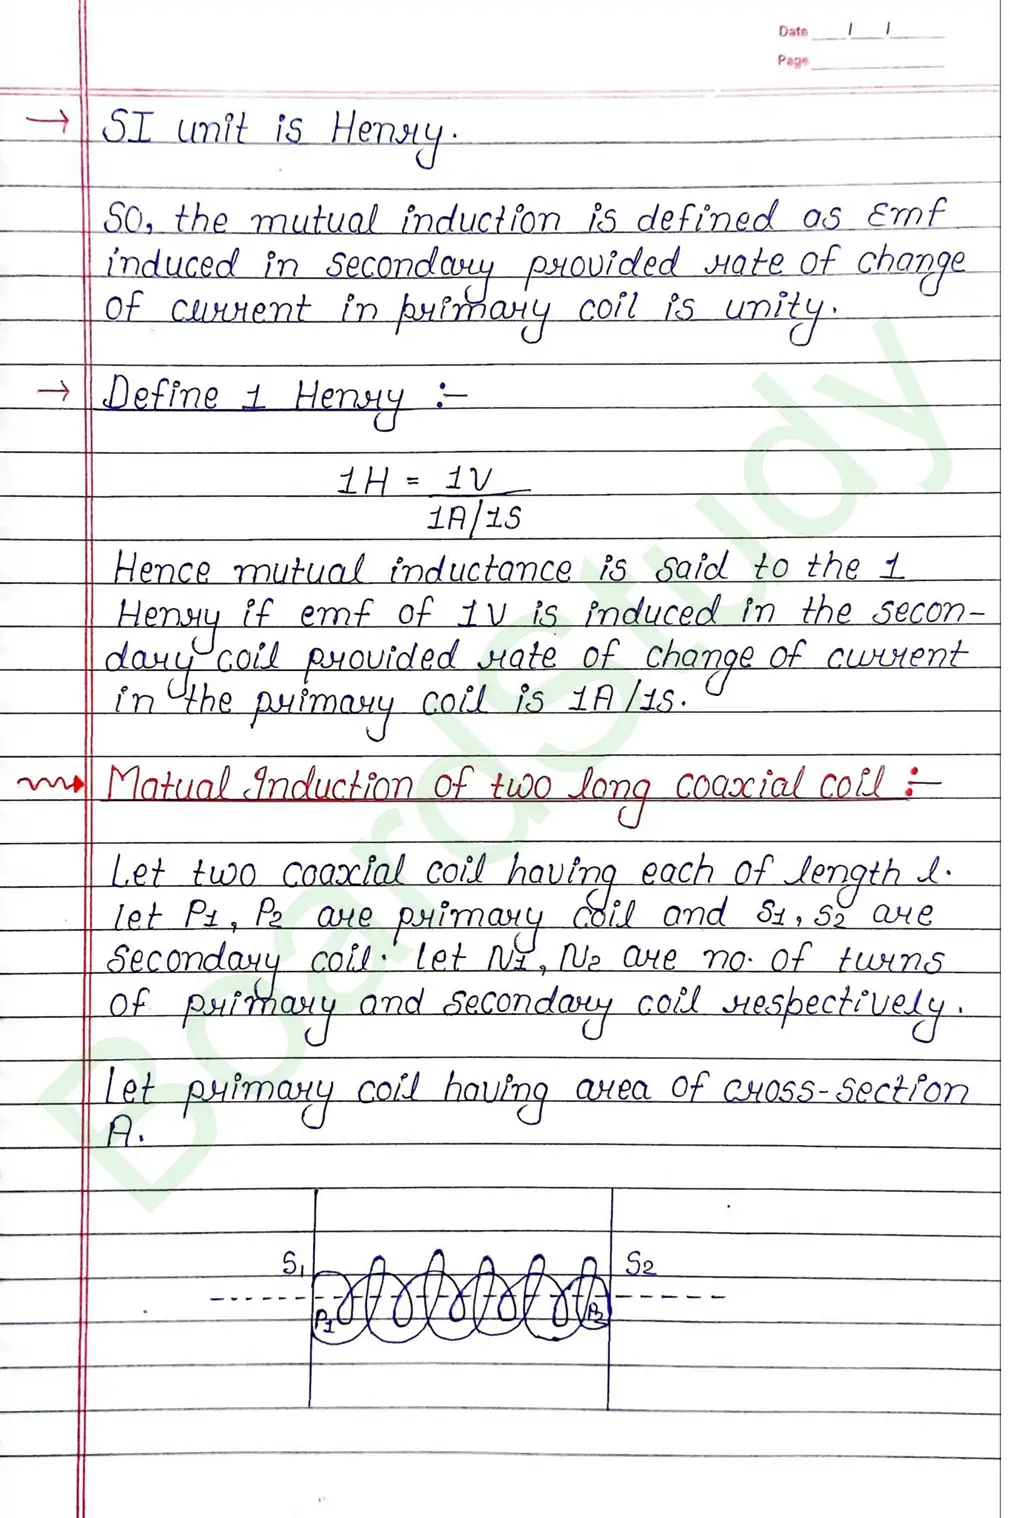 Date / /
Page
→ SI unit is Henry.
SO, the mutual induction is defined as Emf
induced in secondary provided rate of change
of current in primary coil is unity.
→ Define 1 Henry :-
1H = 1V
1A/1S
Hence mutual inductance is said to the 1
Henry if emf of 1V is induced in the secon-
dary coil provided rate of change of current
in the primary coil is 1A/1s.
Matual Induction of two long coaxial coil :-
Let two coaxial coil having each of length l.
let P1, P2 are primary coil and S1, S2 are
secondary coil. let N1, N2 are no. of turns
of primary and secondary coil respectively.
Let primary coil having area of cross-section
A.
S1 S2
P1 P2
BoardStudy